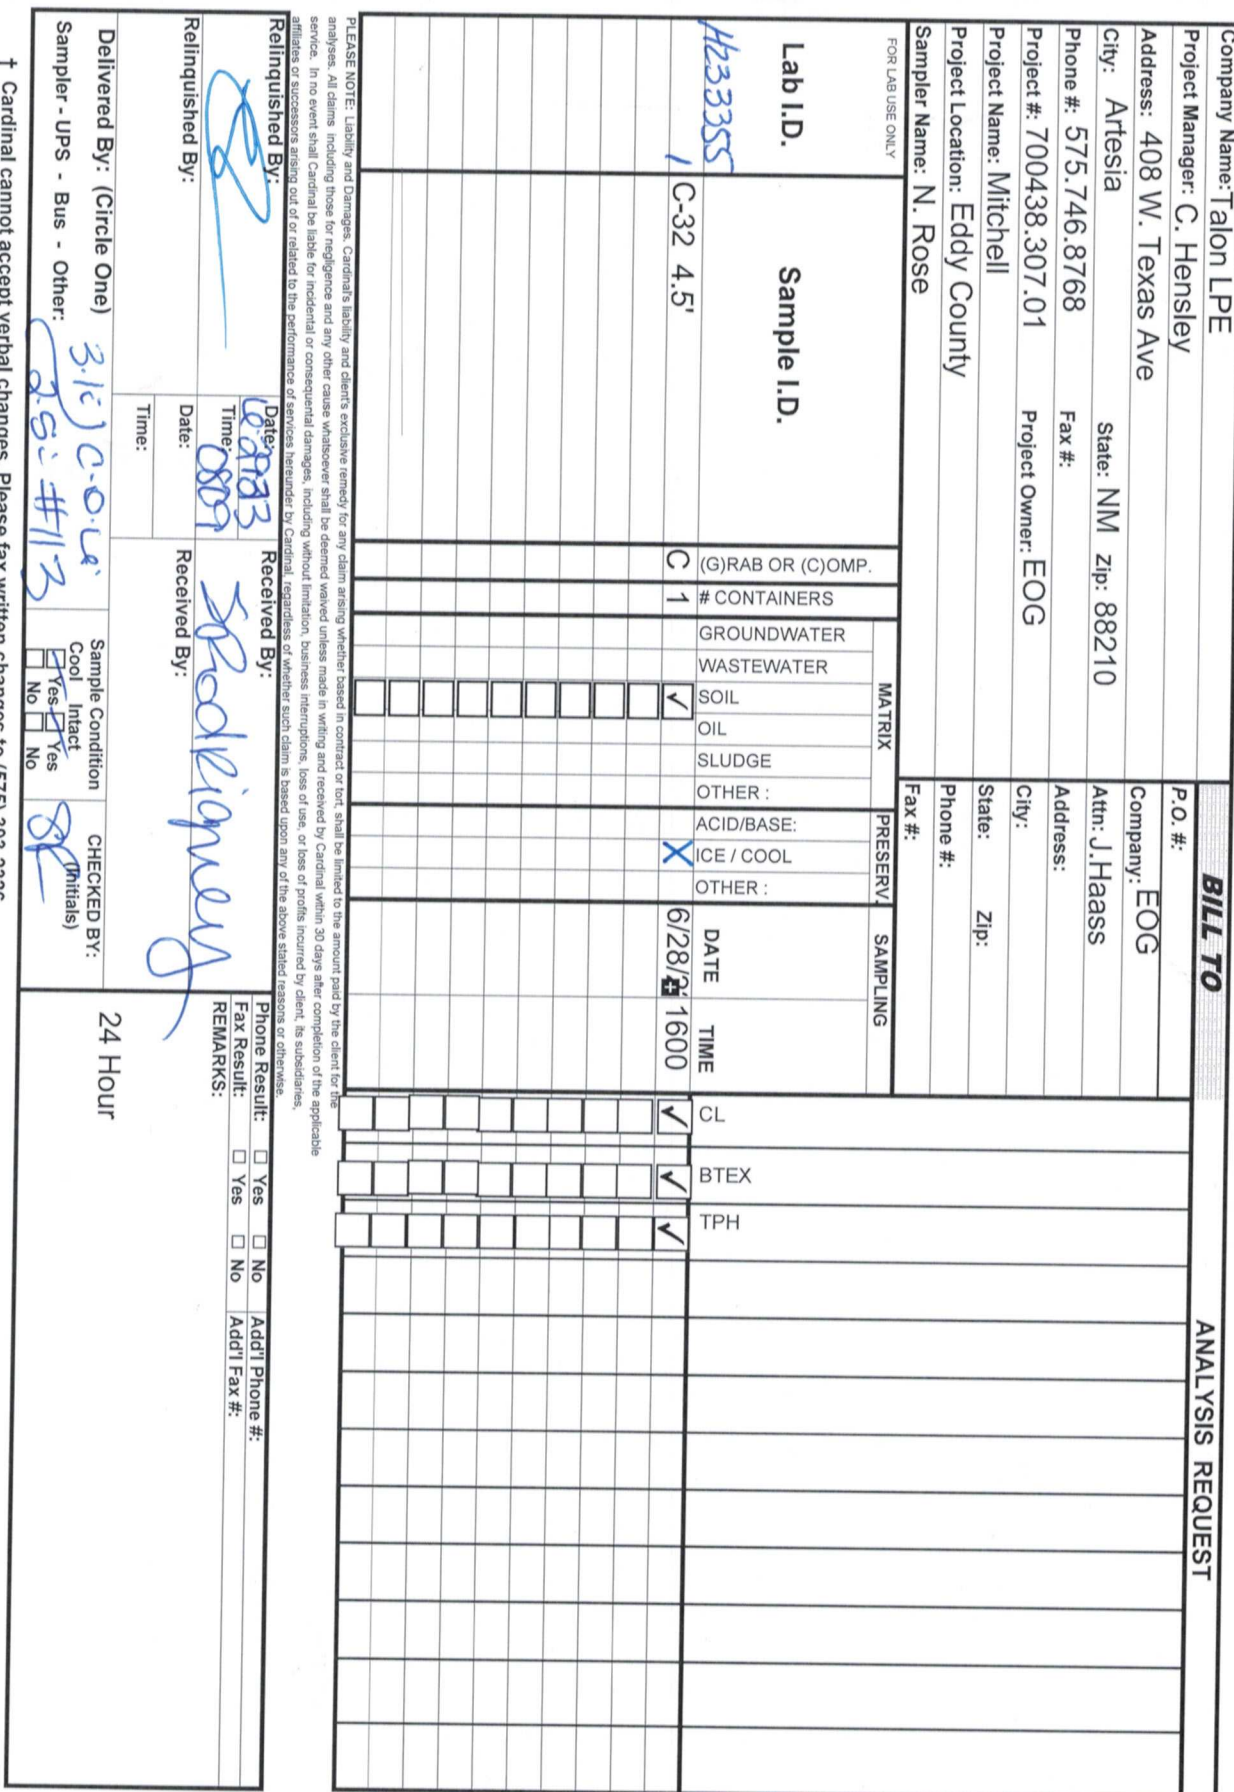 Company Name: Talon LPE
Project Manager: C. Hensley
Address: 408 W. Texas Ave
City: Artesia State: NM Zip: 88210
Phone #: 575.746.8768 Fax #:
Project #: 700438.307.01 Project Owner: EOG
Project Name: Mitchell
Project Location: Eddy County
Sampler Name: N. Rose
BILL TO
P.O. #:
Company: EOG
Attn: J.Haass
Address:
City:
State: Zip:
Phone #:
Fax #:
ANALYSIS REQUEST
FOR LAB USE ONLY
Lab I.D.
Sample I.D.
(G)RAB OR (C)OMP.
# CONTAINERS
MATRIX
GROUNDWATER
WASTEWATER
SOIL
OIL
SLUDGE
OTHER :
PRESERV.
ACID/BASE:
ICE / COOL
OTHER :
SAMPLING
DATE TIME
CL
BTEX
TPH
H233355
1 C-32 4.5' C 1 ✓ X 6/28/2 1600 ✓ ✓ ✓
PLEASE NOTE: Liability and Damages. Cardinal's liability and client's exclusive remedy for any claim arising whether based in contract or tort, shall be limited to the amount paid by the client for the
analyses. All claims including those for negligence and any other cause whatsoever shall be deemed waived unless made in writing and received by Cardinal within 30 days after completion of the applicable
service. In no event shall Cardinal be liable for incidental or consequental damages, including without limitation, business interruptions, loss of use, or loss of profits incurred by client, its subsidiaries,
affiliates or successors arising out of or related to the performance of services hereunder by Cardinal, regardless of whether such claim is based upon any of the above stated reasons or otherwise.
Relinquished By:
Date:
Time: 0809
Received By:
SRodriguez
Relinquished By:
Date:
Time:
Received By:
Phone Result: □ Yes □ No Add'l Phone #:
Fax Result: □ Yes □ No Add'l Fax #:
REMARKS:
24 Hour
Delivered By: (Circle One)
Sampler - UPS - Bus - Other:
#113
Sample Condition
Cool Intact
Yes Yes
No No
CHECKED BY:
(Initials)
SR
† Cardinal cannot accept verbal changes. Please fax written changes to (575) 393-2326